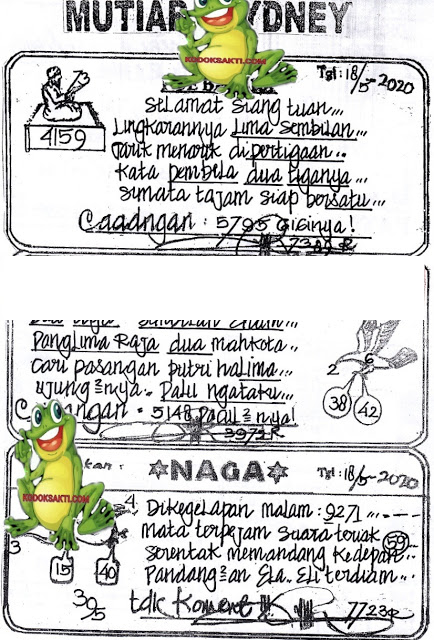 MUTIAR YDNEY
KODOKSAKTI.COM
Tgl : 18/5-2020
73
4159
SELamat Siang tuan,,,
Lingkarannya Lima Sembilan,,,
Tarik menarik di pertigaan,,
Kata pembela dua tiganya,,,
Sumata tajam siap bersatu,,,
Caadngan : 5795 gisinya!
7389 R
Panglima Raja dua mahkota,,
Cari pasangan putri halima,,,
ujung ²nya.. Palu ngataku,,,
5148
3973 R
2
6
38
42
KODOKSAKTI.COM
kan :
NAGA
Tgl : 18/5-2020
Dikegelapan malam : 9271
mata terpejam suara teriak
59
Serentak memandang kedepan
Pandang²an Ela.. Eli terdiam
4
3
15
40
395
tdk Koment
7723 R